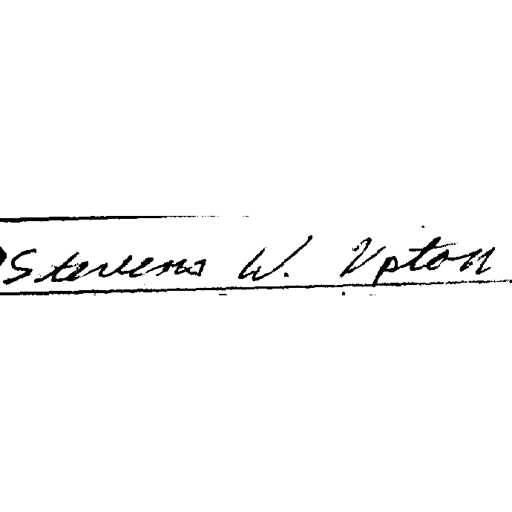 Stevens W. Upton